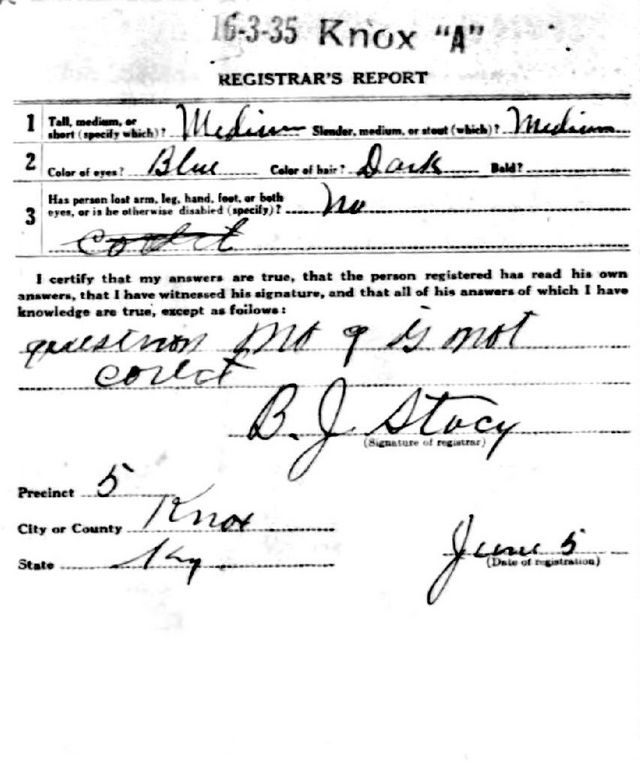 16-3-35 Knox "A"
REGISTRAR'S REPORT
1 Tall, medium, or short (specify which)? Medium Slender, medium, or stout (which)? Medium
2 Color of eyes? Blue Color of hair? Dark Bald?
3 Has person lost arm, leg, hand, foot, or both
eyes, or is he otherwise disabled (specify)? No
I certify that my answers are true, that the person registered has read his own
answers, that I have witnessed his signature, and that all of his answers of which I have
knowledge are true, except as follows:
question No 9 is not
corect
B. J. Stacy
(Signature of registrar)
Precinct 5
City or County Knox
State Ky
June 5
(Date of registration)